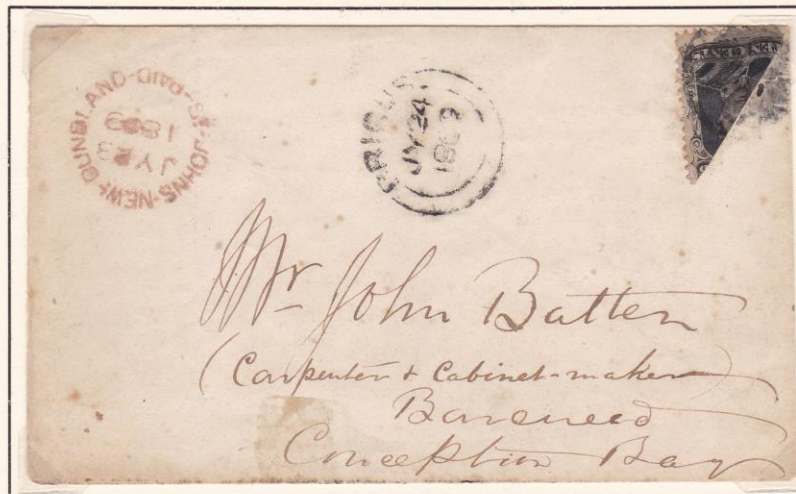 PAID-ST. JOHNS-NEWFOUNDLAND
JY 23
1869
BRIGUS
JY 24
1869
Mr John Batten
(Carpenter & Cabinet-maker)
Bareneed
Conception Bay